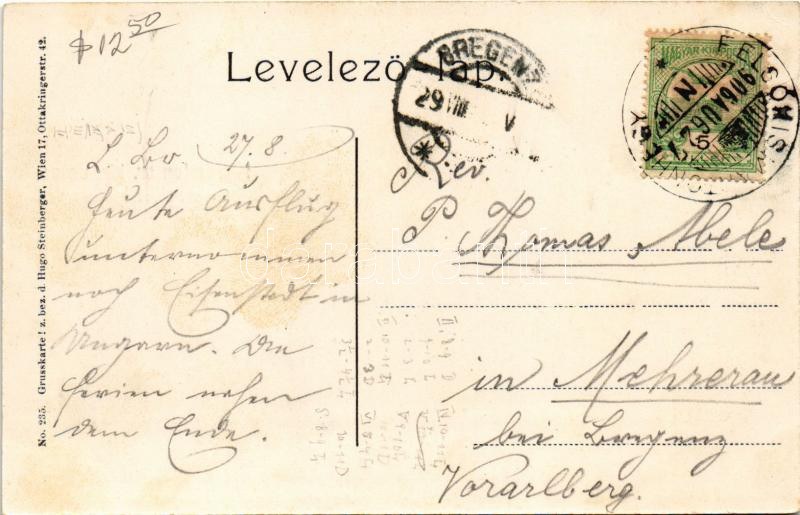 $ 12 50
Levelező-lap.
BREGENZ
29 VIII V
MAGYAR KIR. POSTA
5
27.8.
L. Br.
Heute Ausflug
unternommen
nach Eisenstadt in
Ungarn. Die
Ferien nahen
dem Ende.
Rev.
P. Thomas Abele
in Mehrerau
bei Bregenz
Vorarlberg.
No. 235. Grusskarte! z. bez. d. Hugo Steinberger, Wien 17, Ottakringerstr. 42.